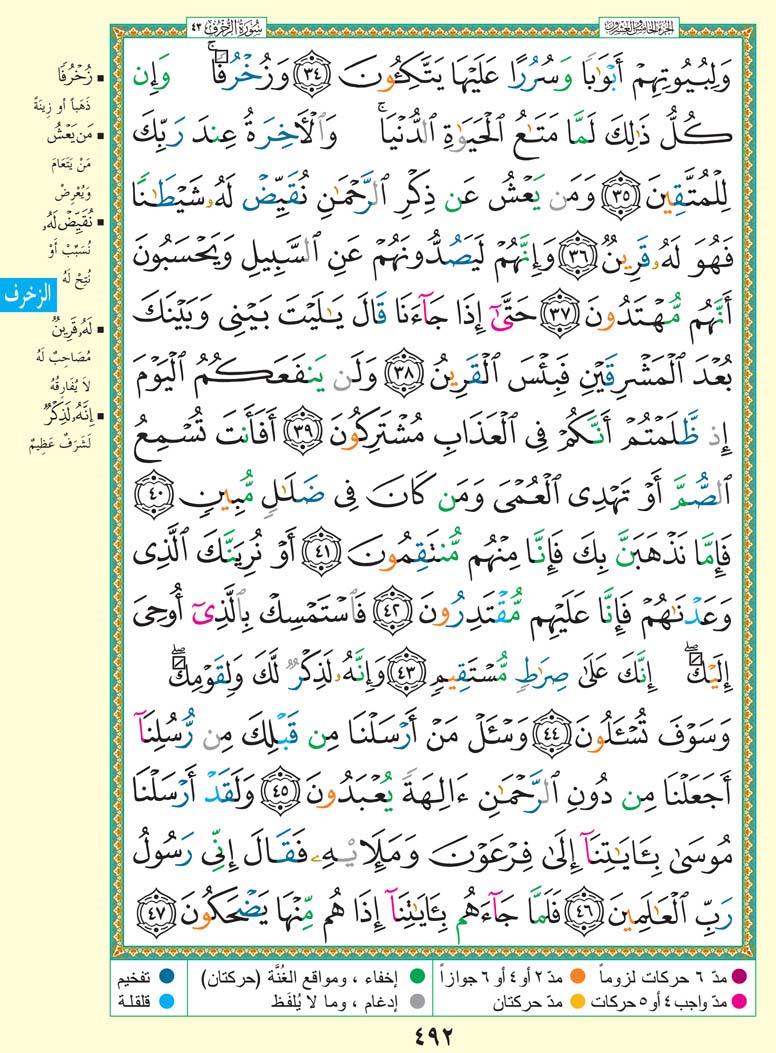 سُورَةُ الزُّخْرُفِ ٤٣
الجزء الخامس والعشرون
وَلِبُيُوتِهِمْ أَبْوَٰبًا وَسُرُرًا عَلَيْهَا يَتَّكِـُٔونَ ٣٤ وَزُخْرُفًا ۚ وَإِن
كُلُّ ذَٰلِكَ لَمَّا مَتَـٰعُ ٱلْحَيَوٰةِ ٱلدُّنْيَا ۚ وَٱلْـَٔاخِرَةُ عِندَ رَبِّكَ
لِلْمُتَّقِينَ ٣٥ وَمَن يَعْشُ عَن ذِكْرِ ٱلرَّحْمَـٰنِ نُقَيِّضْ لَهُۥ شَيْطَـٰنًا
فَهُوَ لَهُۥ قَرِينٌ ٣٦ وَإِنَّهُمْ لَيَصُدُّونَهُمْ عَنِ ٱلسَّبِيلِ وَيَحْسَبُونَ
أَنَّهُم مُّهْتَدُونَ ٣٧ حَتَّىٰٓ إِذَا جَآءَنَا قَالَ يَـٰلَيْتَ بَيْنِى وَبَيْنَكَ
بُعْدَ ٱلْمَشْرِقَيْنِ فَبِئْسَ ٱلْقَرِينُ ٣٨ وَلَن يَنفَعَكُمُ ٱلْيَوْمَ
إِذ ظَّلَمْتُمْ أَنَّكُمْ فِى ٱلْعَذَابِ مُشْتَرِكُونَ ٣٩ أَفَأَنتَ تُسْمِعُ
ٱلصُّمَّ أَوْ تَهْدِى ٱلْعُمْىَ وَمَن كَانَ فِى ضَلَـٰلٍ مُّبِينٍ ٤٠
فَإِمَّا نَذْهَبَنَّ بِكَ فَإِنَّا مِنْهُم مُّنتَقِمُونَ ٤١ أَوْ نُرِيَنَّكَ ٱلَّذِى
وَعَدْنَـٰهُمْ فَإِنَّا عَلَيْهِم مُّقْتَدِرُونَ ٤٢ فَٱسْتَمْسِكْ بِٱلَّذِىٓ أُوحِىَ
إِلَيْكَ ۖ إِنَّكَ عَلَىٰ صِرَٰطٍ مُّسْتَقِيمٍ ٤٣ وَإِنَّهُۥ لَذِكْرٌ لَّكَ وَلِقَوْمِكَ ۖ
وَسَوْفَ تُسْـَٔلُونَ ٤٤ وَسْـَٔلْ مَنْ أَرْسَلْنَا مِن قَبْلِكَ مِن رُّسُلِنَآ
أَجَعَلْنَا مِن دُونِ ٱلرَّحْمَـٰنِ ءَالِهَةً يُعْبَدُونَ ٤٥ وَلَقَدْ أَرْسَلْنَا
مُوسَىٰ بِـَٔايَـٰتِنَآ إِلَىٰ فِرْعَوْنَ وَمَلَإِي۟هِۦ فَقَالَ إِنِّى رَسُولُ
رَبِّ ٱلْعَـٰلَمِينَ ٤٦ فَلَمَّا جَآءَهُم بِـَٔايَـٰتِنَآ إِذَا هُم مِّنْهَا يَضْحَكُونَ ٤٧
▪ زُخْرُفًا
ذَهَباً أو زِينَةً
▪ مَن يَعْشُ
مَنْ يَتَعَامَ
وَيُعْرِضْ
▪ نُقَيِّضْ لَهُۥ
نُسَبِّبْ أوْ
نُتِحْ لَهُ
▪ لَهُۥ قَرِينٌ
مُصَاحِبٌ لَهُ
لاَ يُفَارِقُهُ
▪ إِنَّهُۥ لَذِكْرٌ
لَشَرَفٌ عَظِيمٌ
الزخرف
مدّ ٦ حركات لزوماً
مدّ ٢ أو ٤ أو ٦ جوازاً
إخفاء ، ومواقع الغُنَّة (حركتان)
تفخيم
مدّ واجب ٤ أو ٥ حركات
مدّ حركتان
إدغام ، وما لا يُلفَظ
قلقلة
٤٩٢